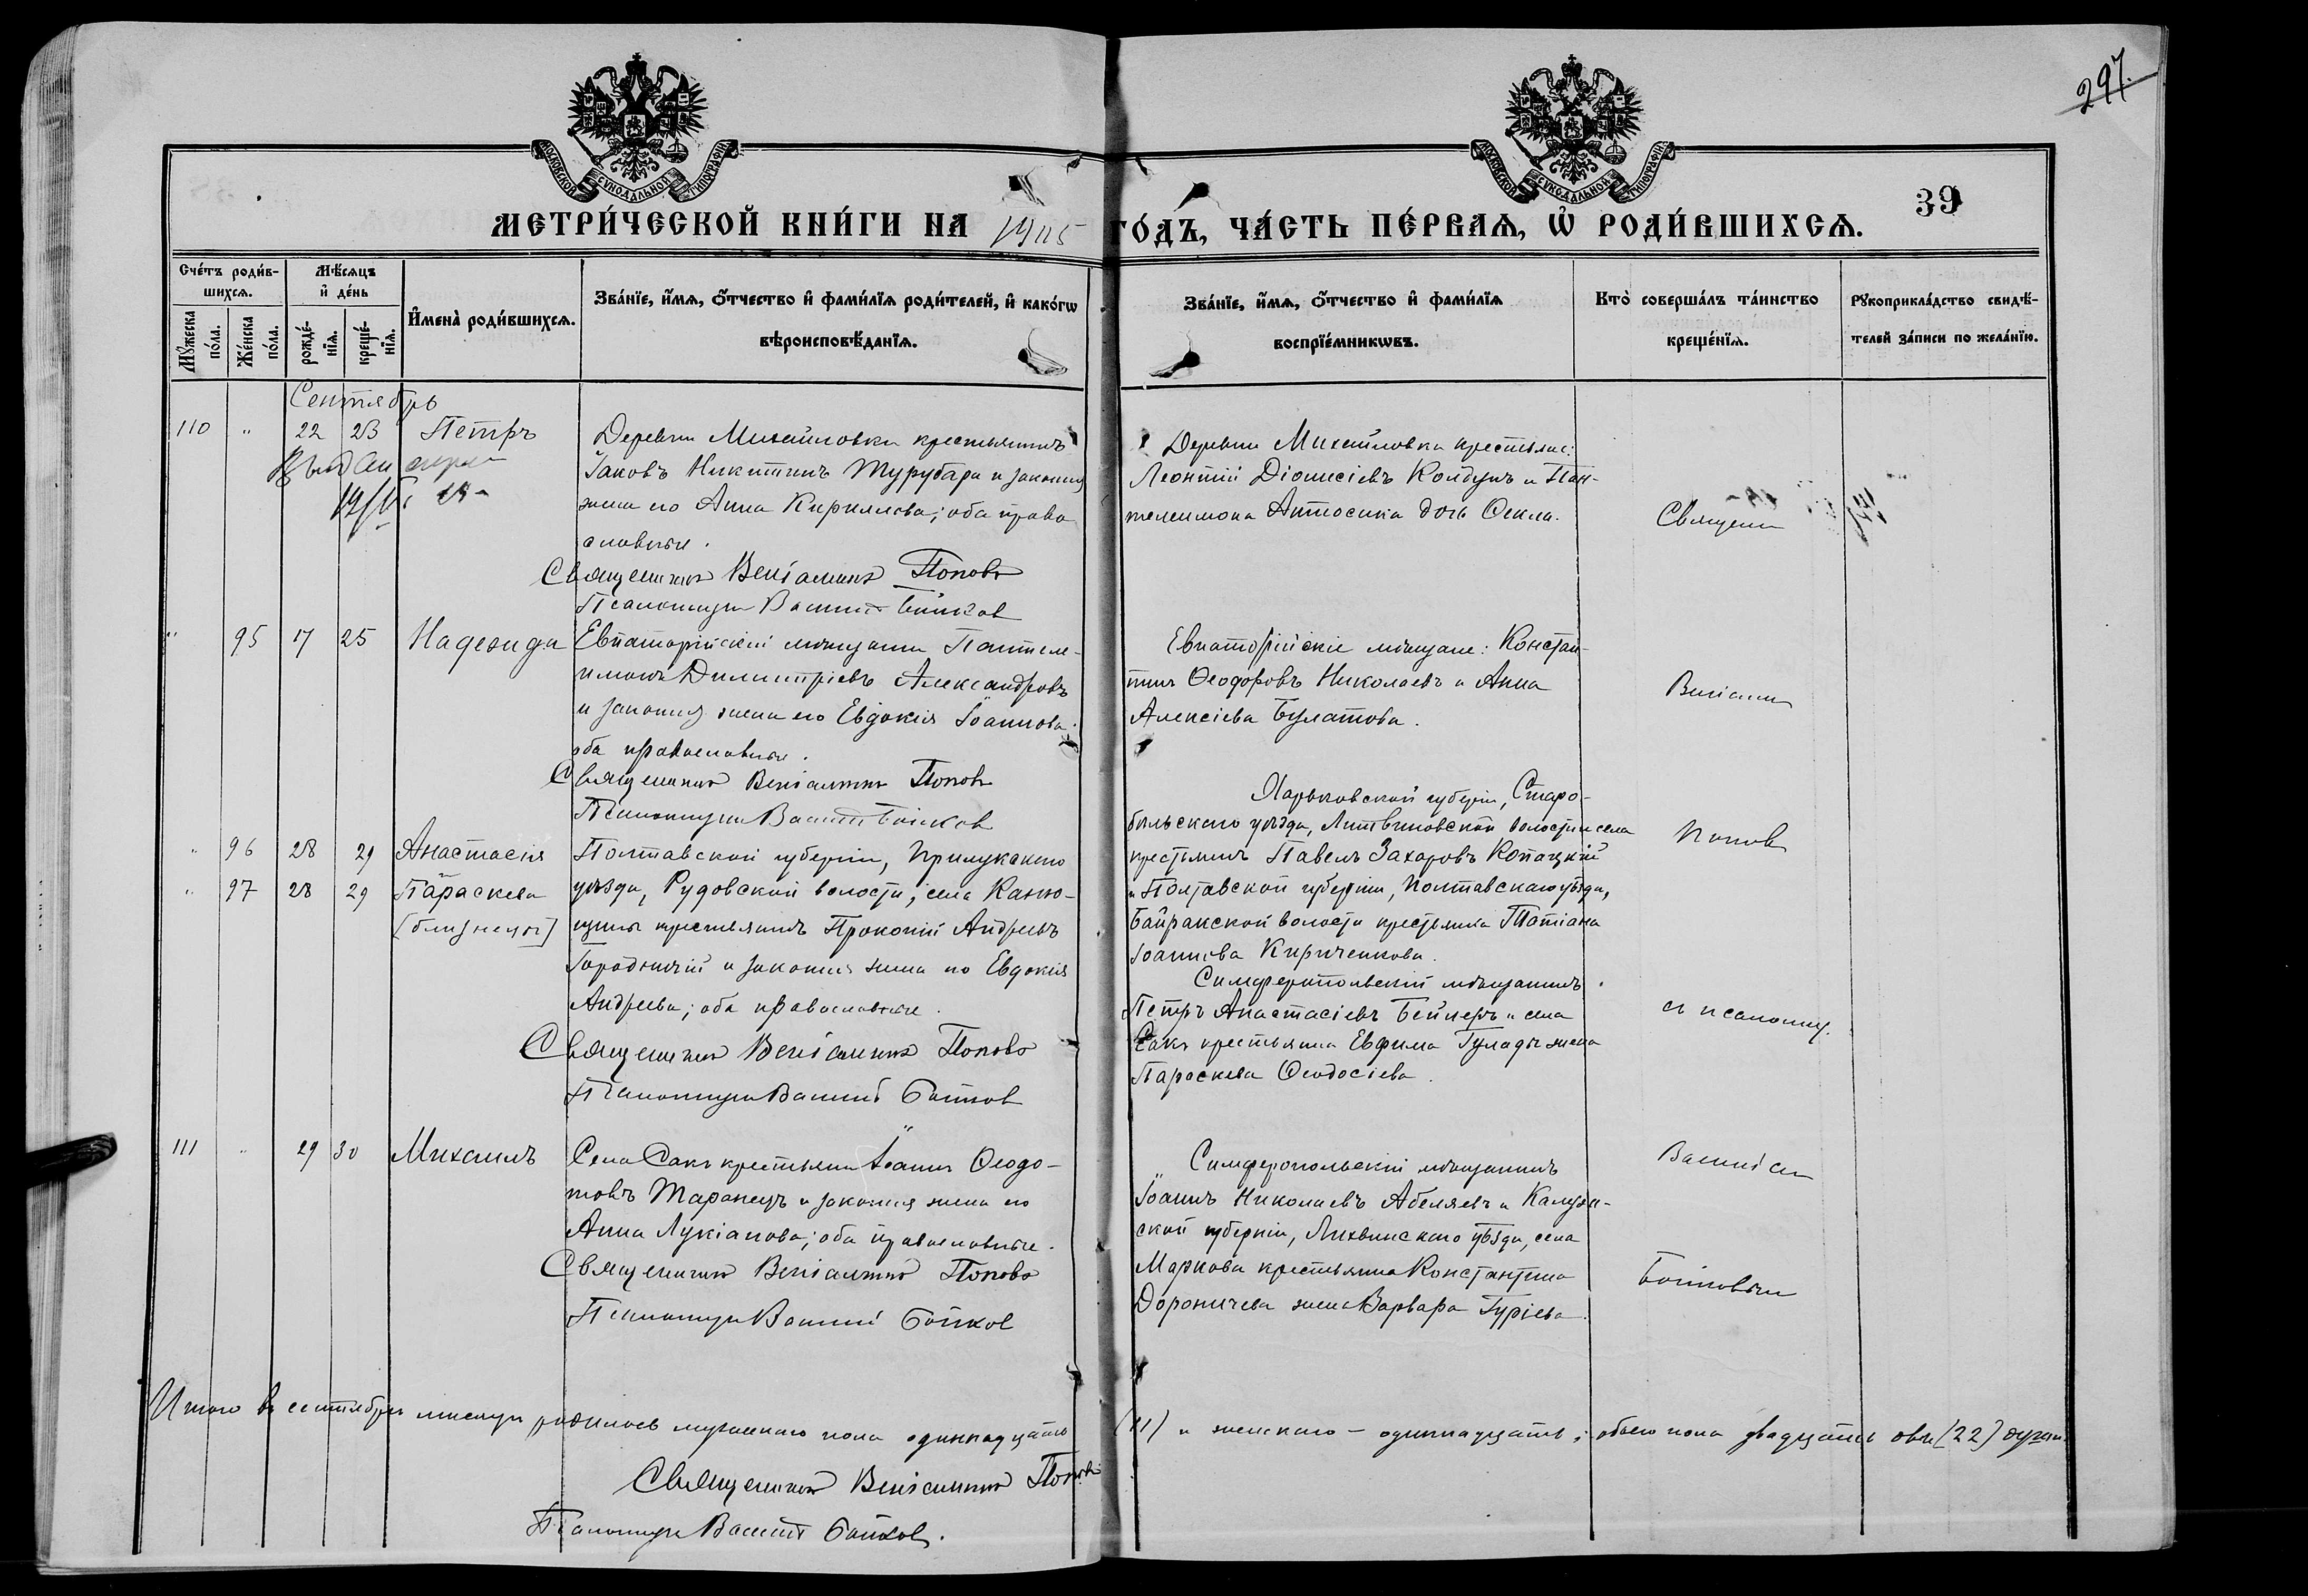 297.
МОСКОВСКОЙ СѴНОДАЛЬНОЙ ТИПОГРАФІИ
МОСКОВСКОЙ СѴНОДАЛЬНОЙ ТИПОГРАФІИ
39
МЕТРИ́ЧЕСКОЙ КНИ́ГИ НА 1905 ГО́ДЪ, ЧА́СТЬ ПЕ́РВАѦ, Ѡ҆ РОДИ́ВШИХСѦ.
Сче́тъ роди́в-
шихсѧ.
Мꙋ́жеска
по́ла.
Же́нска
по́ла.
Мѣ́сѧцъ
и҆ де́нь
рожде́-
нїѧ.
креще́-
нїѧ.
И҆мена̀ роди́вшихсѧ.
Зва́нїе, и҆́мѧ, ѻ҆́тчество и҆ фами́лїѧ роди́телей, и҆ како́гѡ
вѣроисповѣ́данїѧ.
Зва́нїе, и҆́мѧ, ѻ҆́тчество и҆ фами́лїѧ
воспрїе́мникѡвъ.
Кто̀ соверша́лъ та́инство
креще́нїѧ.
Рꙋкоприкла́дство свидѣ́-
телей за́писи по жела́нїю.
Сентябрь
110 " 22 23 Петръ
Деревни Михайловки крестьянинъ
Іаковъ Никитинъ Турубара и законная
жена его Анна Кириллова; оба право
славные.
Священникъ Веніаминъ Поповъ
Псаломщикъ Василій Бойков
Деревни Михайловки крестьяне:
Леонтій Діонисіевъ Колдунъ и Пан-
телеимона Антосика дочь Ѳекла.
Священн
" 95 17 25 Надежда
Евпаторійскій мѣщанинъ Пантеле-
имонъ Димитріевъ Александровъ
и законная жена его Евдокія Іоаннова;
оба православные.
Священникъ Веніаминъ Поповъ
Псаломщикъ Василій Бойков
Евпаторійскіе мѣщане: Констан-
тинъ Ѳеодоровъ Николаевъ и Анна
Алексіева Булатова.
Веніамин
" 96 28 29 Анастасія
" 97 28 29 Параскева
[близнецы]
Полтавской губерніи, Прилукскаго
уѣзда, Рудовской волости, села
крестьянинъ Прокопій Андреевъ
Городничій и законная жена его Евдокія
Андреева; оба православные.
Священникъ Веніаминъ Поповъ
Псаломщикъ Василій Бойков
Харьковской губерніи, Старо-
бѣльскаго уѣзда, Литвиновской волости и села
крестьянинъ Павелъ Захаровъ Копацкій
и Полтавской губерніи, Полтавскаго уѣзда,
Байракской волости крестьянка Татіана
Іоаннова Кириченкова.
Симферопольскій мѣщанинъ
Петръ Анастасіевъ Бейлеръ и села
Сакъ крестьянина Евфима Гулады жена
Параскева Ѳеодосіева.
Попов
съ псаломщ.
111 " 29 30 Михаилъ
Села Сакъ крестьянинъ Іоаннъ Ѳеодо-
товъ Таранецъ и законная жена его
Анна Лукіанова; оба православные.
Священникъ Веніаминъ Поповъ
Псаломщикъ Василій Бойков
Симферопольскій мѣщанинъ
Іоаннъ Николаевъ Абеляевъ и Калуж-
ской губерніи, Лихвинскаго уѣзда, села
Маркова крестьянина Константина
Дороничева жена Варвара Гуріева.
Василіем
Бойковым
Итого въ сентябрѣ мѣсяцѣ родилось мужескаго пола одиннадцать (11) и женскаго – одиннадцать; обоего пола двадцать двѣ (22) души.
Священникъ Веніаминъ Поповъ
Псаломщикъ Василій Бойков.